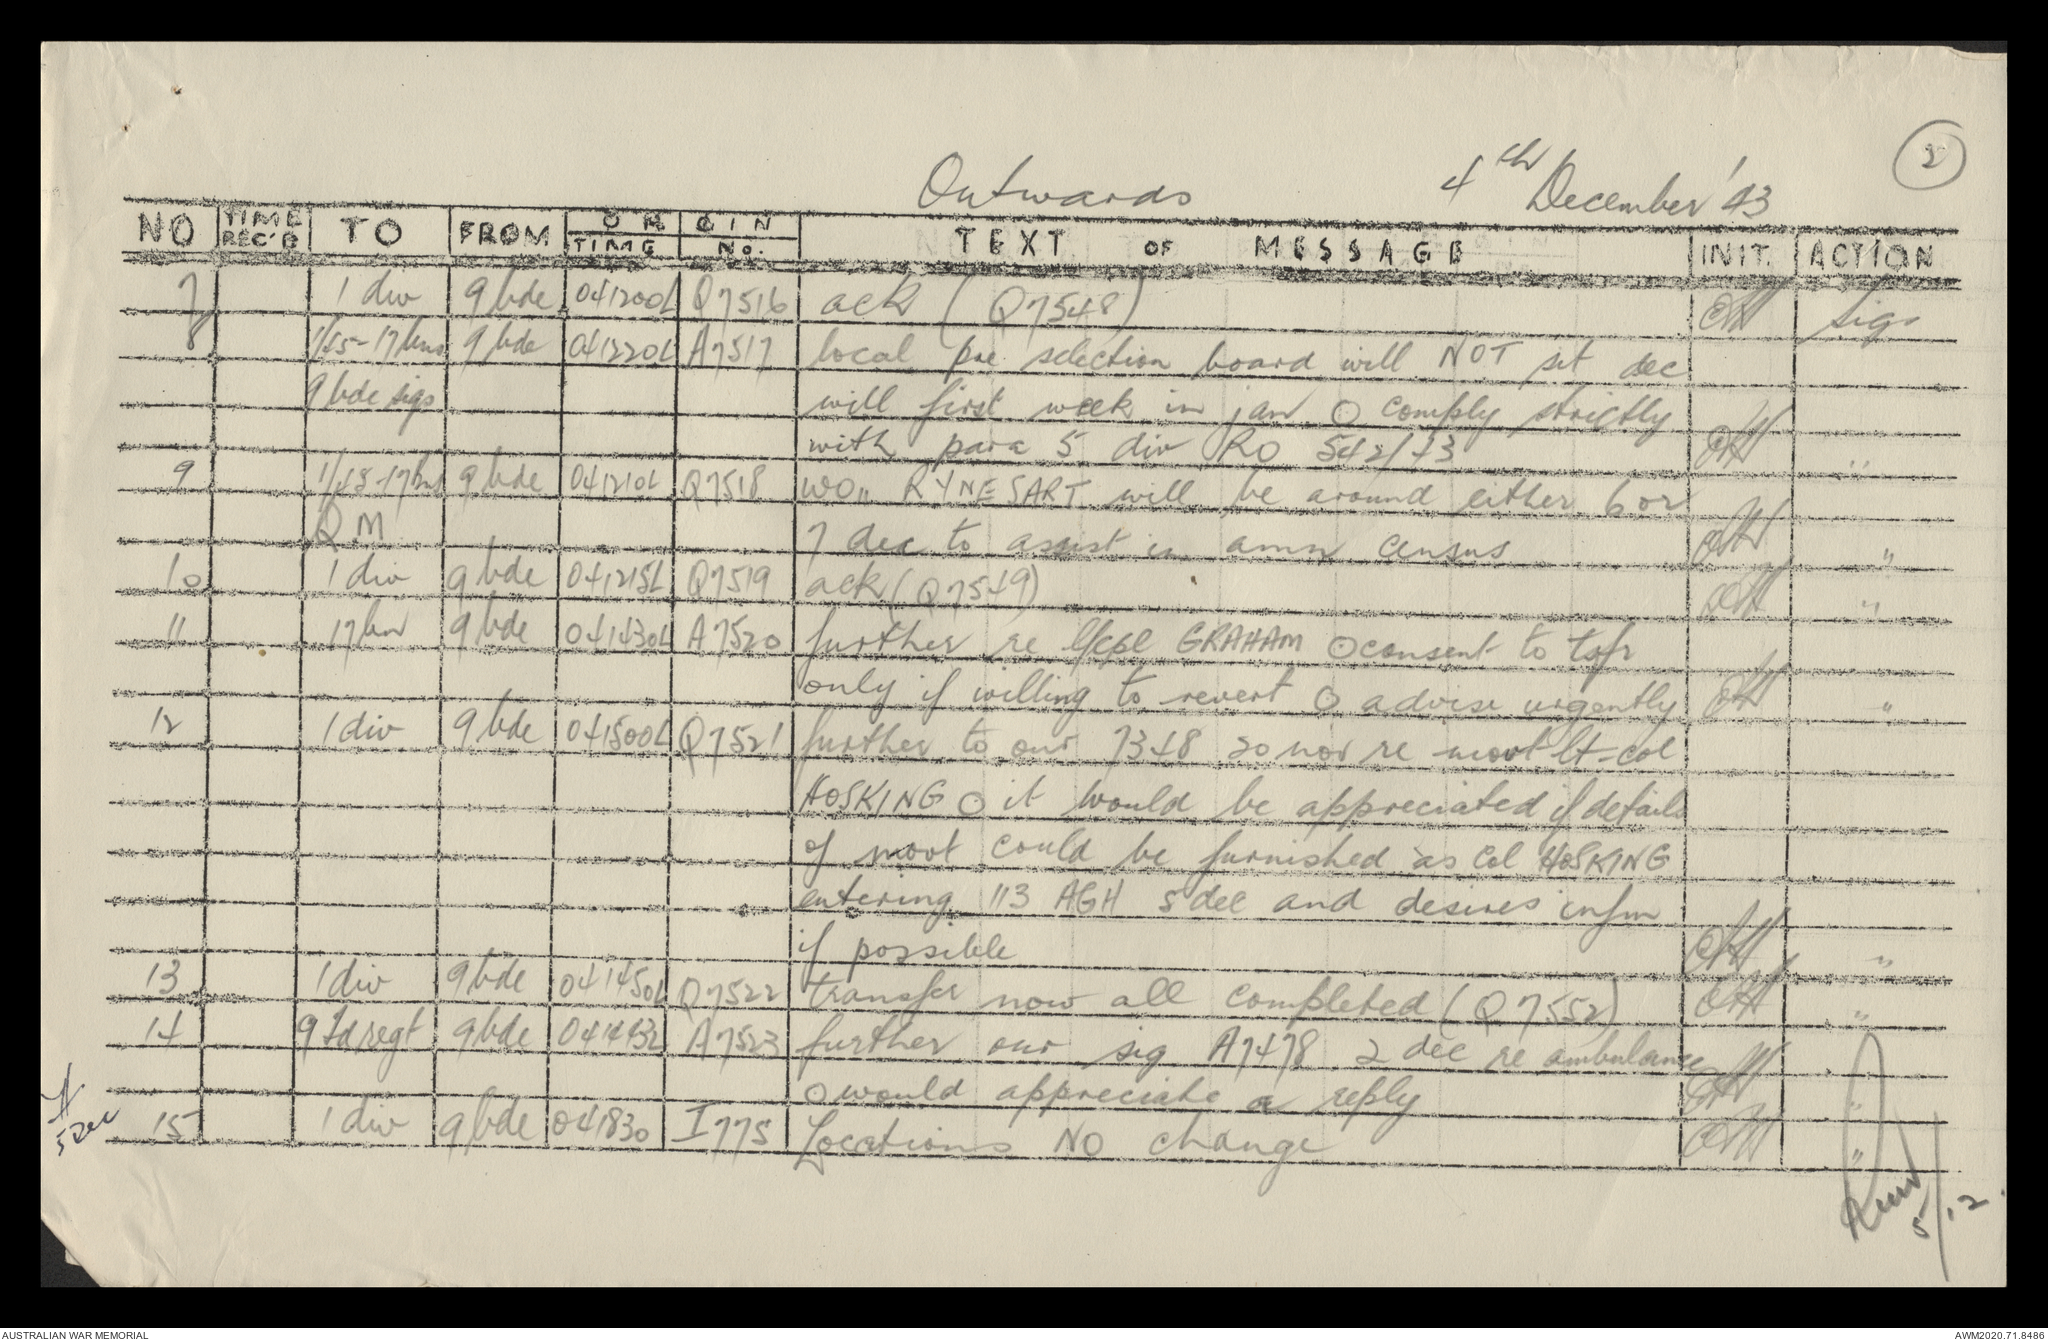 2
Outwards 4th December '43
NO TIME REC'D TO FROM ORIGIN TIME No. TEXT OF MESSAGE INIT. ACTION
7 1 div 9 bde 041200L Q7516 ack (Q7548) sigs
8 1/45-17 bns 9 bde 041220L A7517 local pre selection board will NOT sit dec
9 bde sigs will first week in jan O comply strictly
with para 5 div RO 542/43 "
9 1/45-17 bns 9 bde 041210L Q7518 WO11 RYNESART will be around either 6 or
QM 7 dec to assist in amn census "
10 1 div 9 bde 041215L Q7519 ack (Q7549) "
11 17 bn 9 bde 041430L A7520 further re l/cpl GRAHAM O consent to tsfr
only if willing to revert O advise urgently "
12 1 div 9 bde 041500L Q7521 further to our 7348 20 nov re movt lt-col
HOSKING O it would be appreciated if details
of movt could be furnished as Col HOSKING
entering 113 AGH 5 dec and desires infm
if possible "
13 1 div 9 bde 041450L Q7522 transfer now all completed (Q7552) "
14 9 fd regt 9 bde A7523 further our sig A7478 2 dec re ambulance
O would appreciate a reply "
15 1 div 9 bde 041830 I775 Locations NO change "
5 Dec
5/12
AUSTRALIAN WAR MEMORIAL AWM2020.71.8486